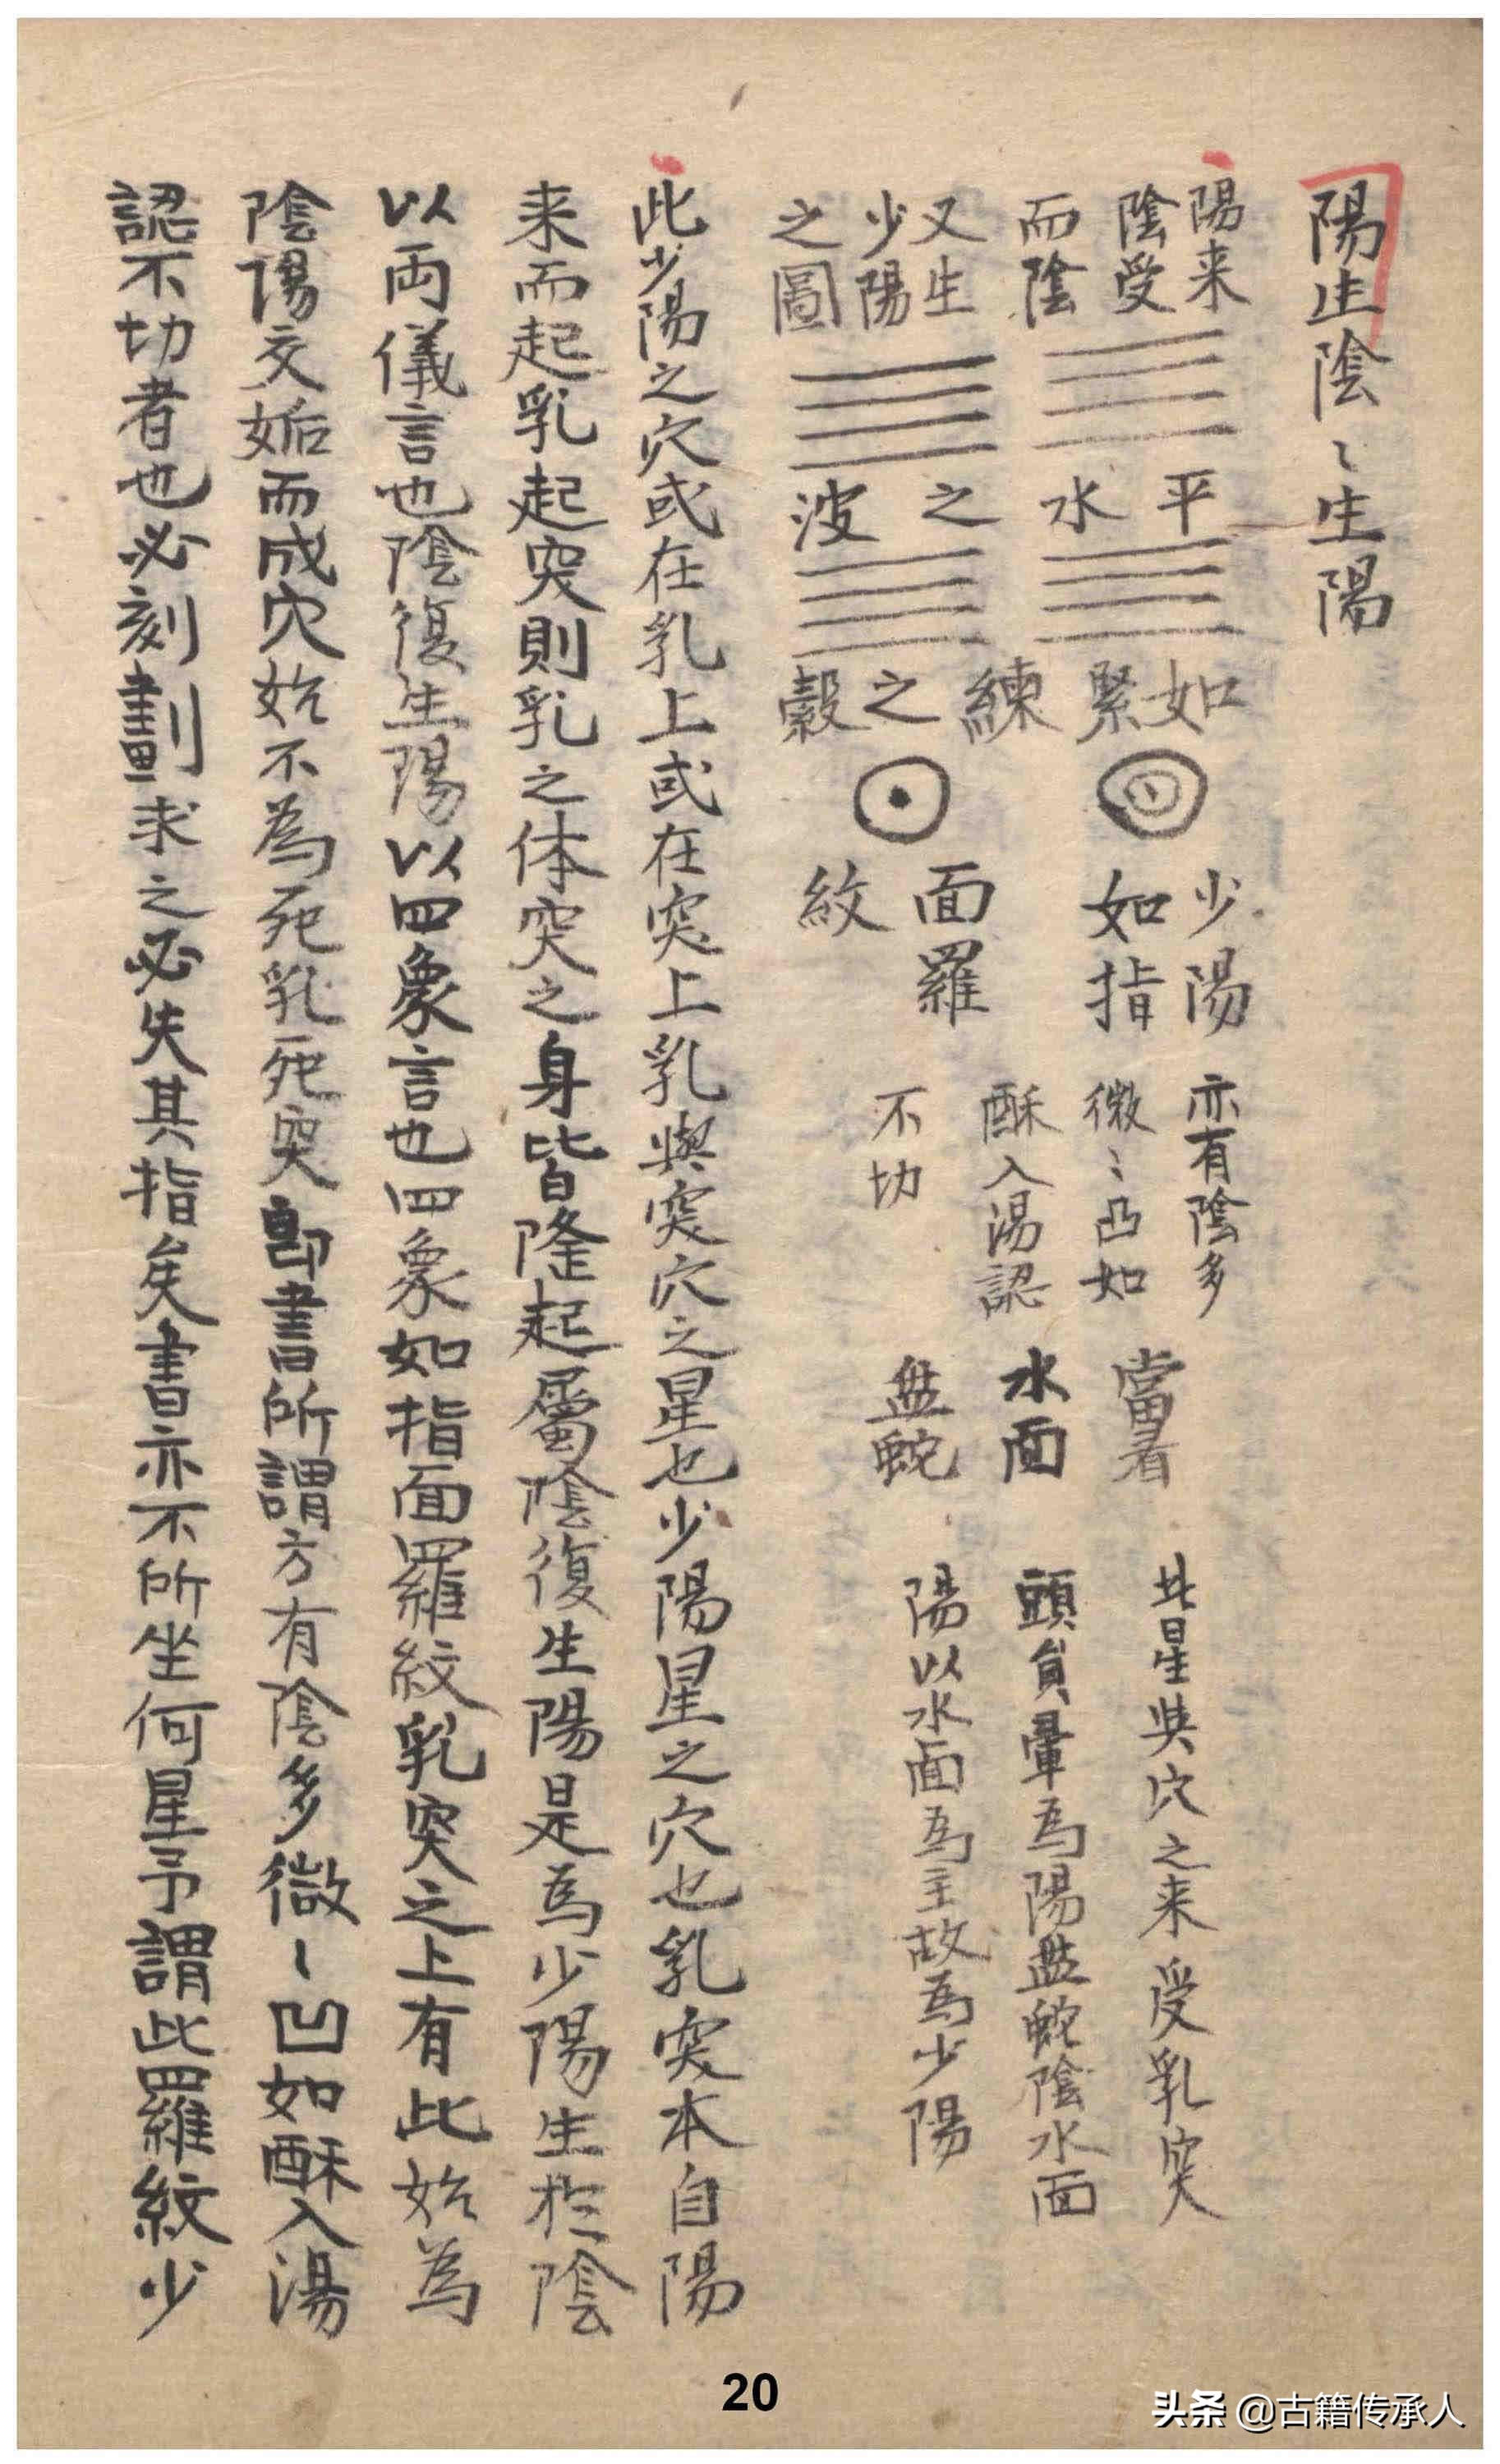 陽生陰〻生陽
陽来
陰受
而陰
又生
少陽
之圖
平水之波
如緊練之縠
少陽
如指
面羅
紋
亦有陰多
微〻凸如
酥入湯認
不切
當看
水面
盤蛇
其星與穴之来受乳突
頭負暈為陽盤蛇陰水面
陽以水面為主故為少陽
此少陽之穴或在乳上或在突上乳與突穴之星也少陽星之穴也乳突本自陽
来而起乳起突則乳之体突之身皆隆起屬陰復生陽是為少陽生於陰
以両儀言也陰復生陽以四象言也四象如指面羅紋乳突之上有此始為
陰陽交姤而成穴始不為死乳死突即書所謂方有陰多微〻凹如酥入湯
認不切者也必刻劃求之必失其指矣書亦不所坐何星予謂此羅紋少
20
头条 @古籍传承人